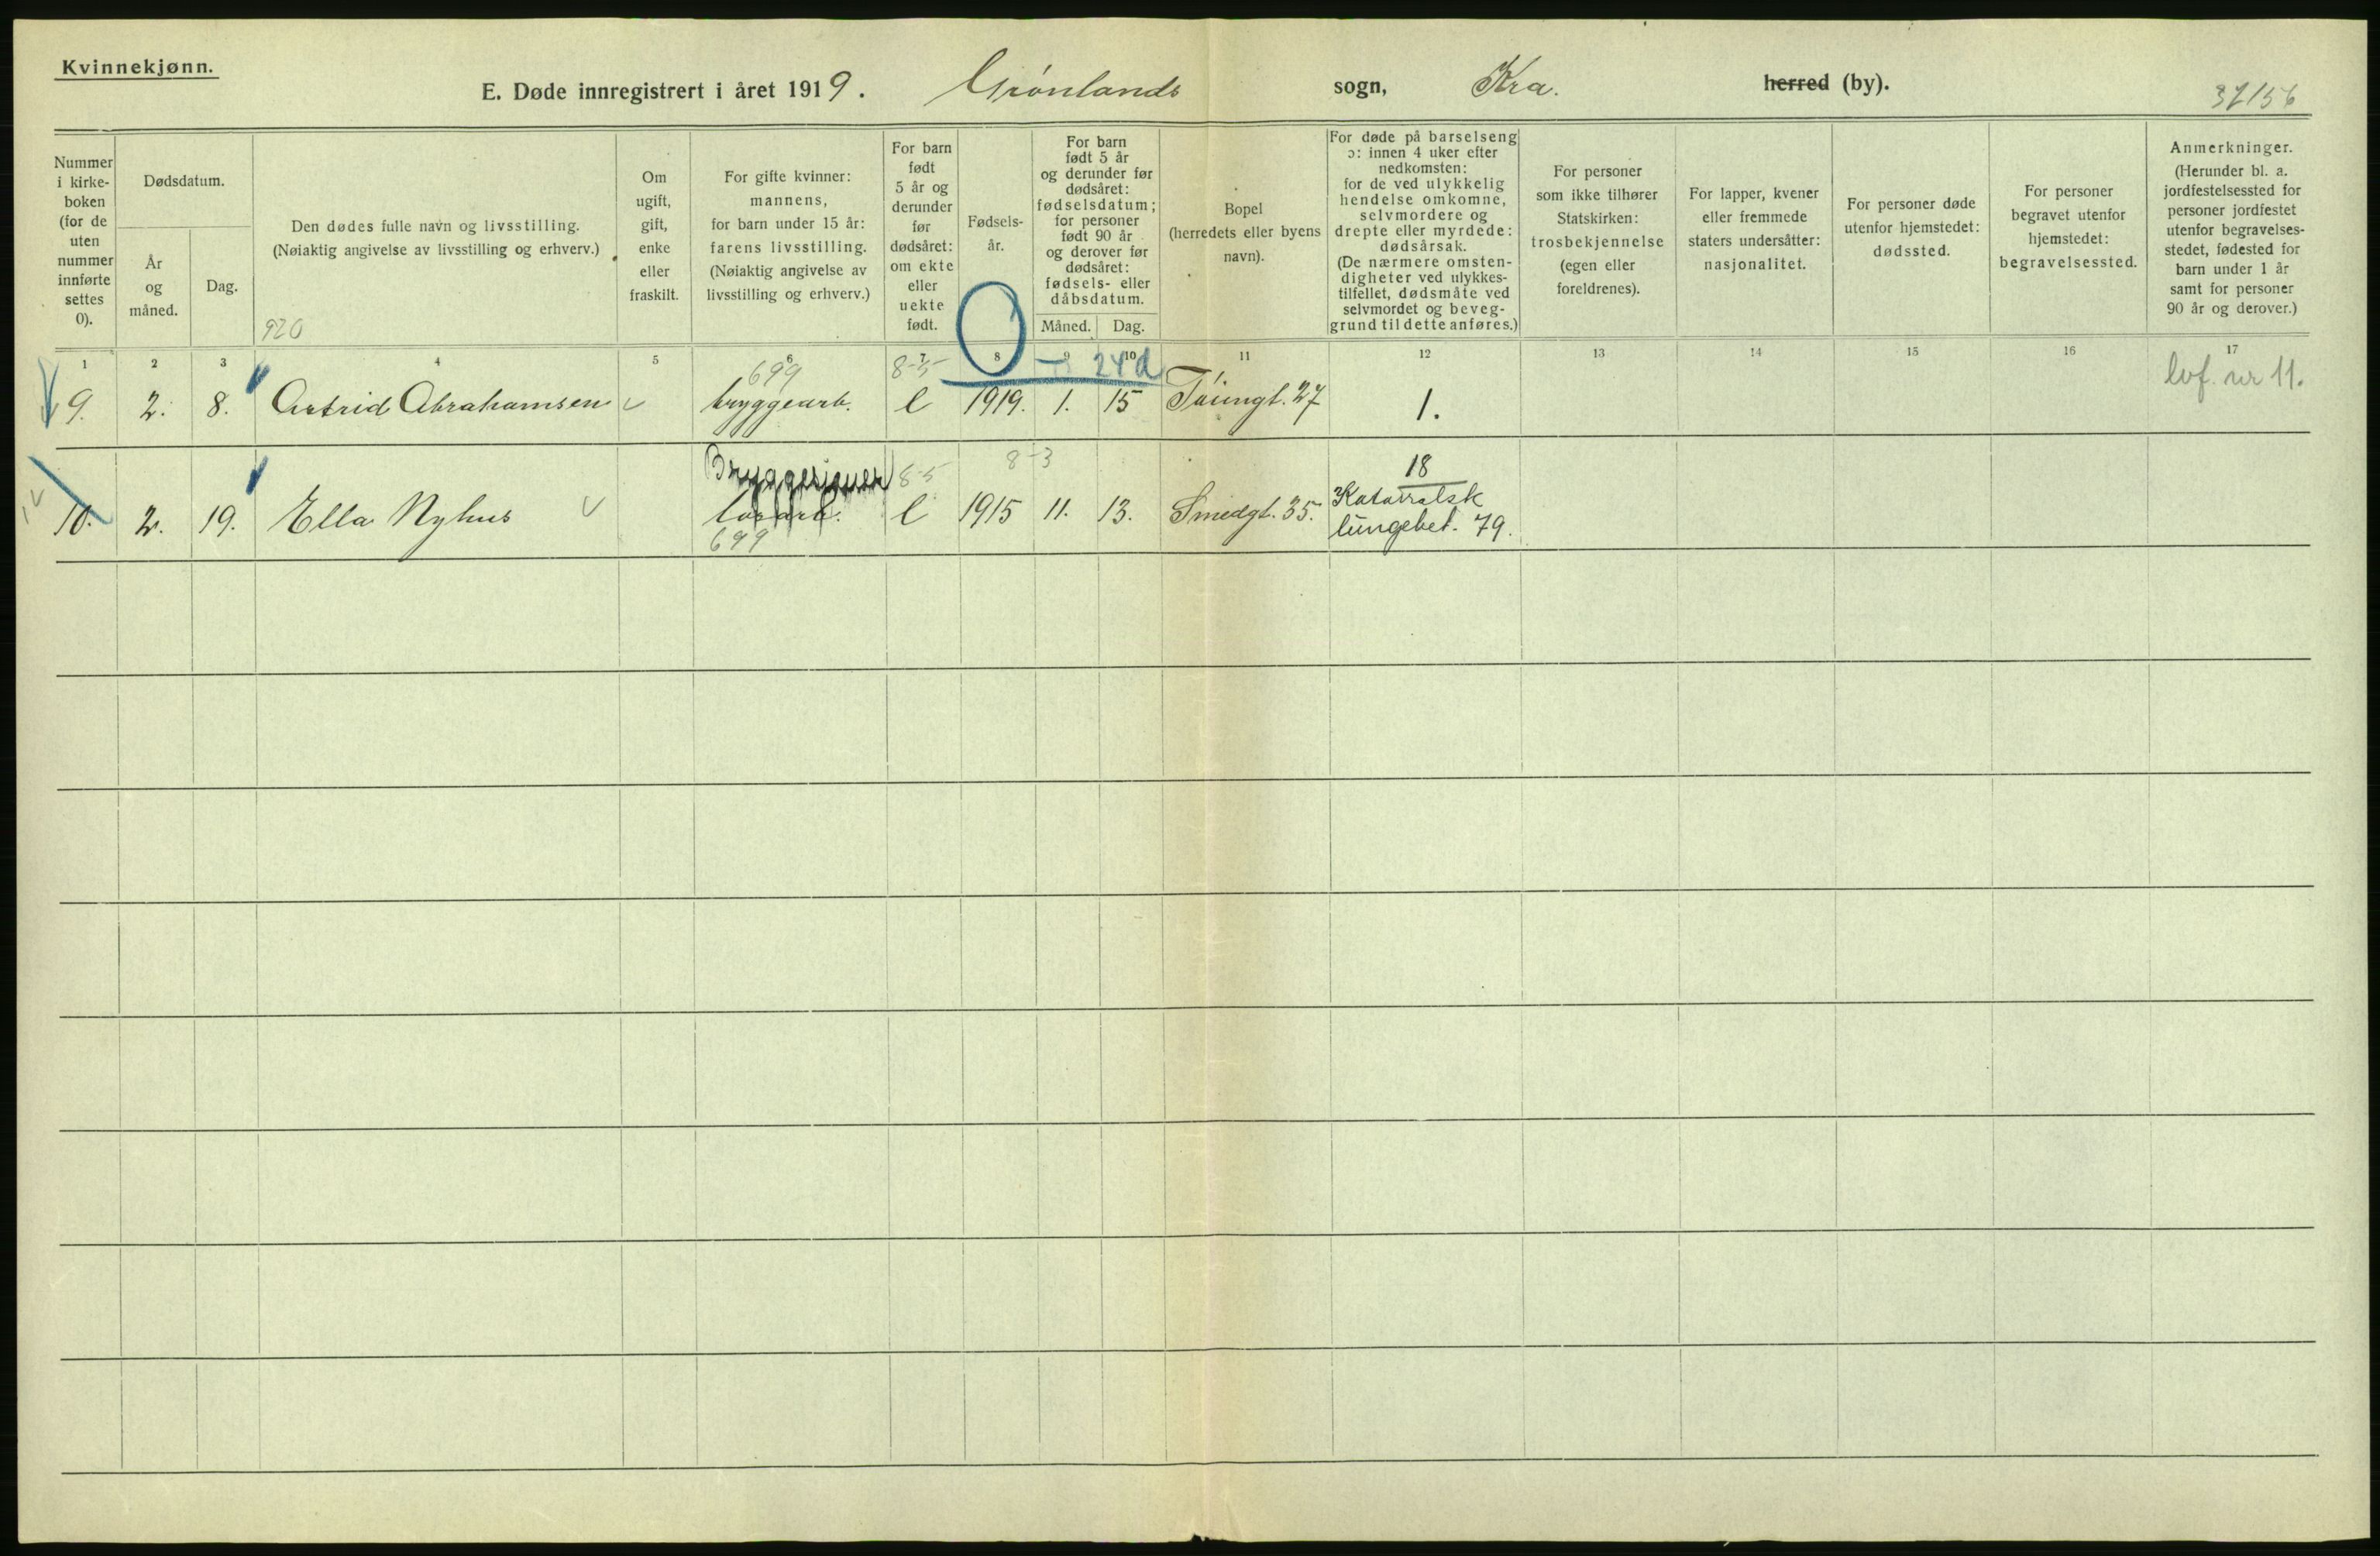 Kvinnekjønn.
E. Døde innregistrert i året 1919. Grønlands sogn, Kra. herred (by).
37156
Nummer i kirke- boken (for de uten nummer innførte settes 0).
Dødsdatum.
År og måned.
Dag.
Den dødes fulle navn og livsstilling.
(Nøiaktig angivelse av livsstilling og erhverv.)
920
Om ugift, gift, enke eller fraskilt.
For gifte kvinner: mannens, for barn under 15 år: farens livsstilling. (Nøiaktig angivelse av livsstilling og erhverv.)
For barn født 5 år og derunder før dødsåret: om ekte eller uekte født.
Fødsels- år.
For barn født 5 år og derunder før dødsåret: fødselsdatum; for personer født 90 år og derover før dødsåret: fødsels- eller dåbsdatum.
Måned. Dag.
Bopel (herredets eller byens navn).
For døde på barselseng ɔ: innen 4 uker efter nedkomsten: for de ved ulykkelig hendelse omkomne, selvmordere og drepte eller myrdede: dødsårsak. (De nærmere omsten- digheter ved ulykkes- tilfellet, dødsmåte ved selvmordet og beveg- grund til dette anføres.)
For personer som ikke tilhører Statskirken: trosbekjennelse (egen eller foreldrenes).
For lapper, kvener eller fremmede staters undersåtter: nasjonalitet.
For personer døde utenfor hjemstedet: dødssted.
For personer begravet utenfor hjemstedet: begravelsessted.
Anmerkninger. (Herunder bl. a. jordfestelsessted for personer jordfestet utenfor begravelses- stedet, fødested for barn under 1 år samt for personer 90 år og derover.)
1 2 3 4 5 6 7 8 9 10 11 12 13 14 15 16 17
699 8-5 0 24 d
9. 2. 8. Astrid Abrahamsen bryggearb. e 1919. 1. 15 Tøiengt. 27 1. lvf. nr 11.
Bryggerigner 8-5 8-3 18
10. 2. 19. Ella Nyhus løsarb. e 1915 11. 13. Smedgt. 35. Katarralsk lungebet. 79.
699